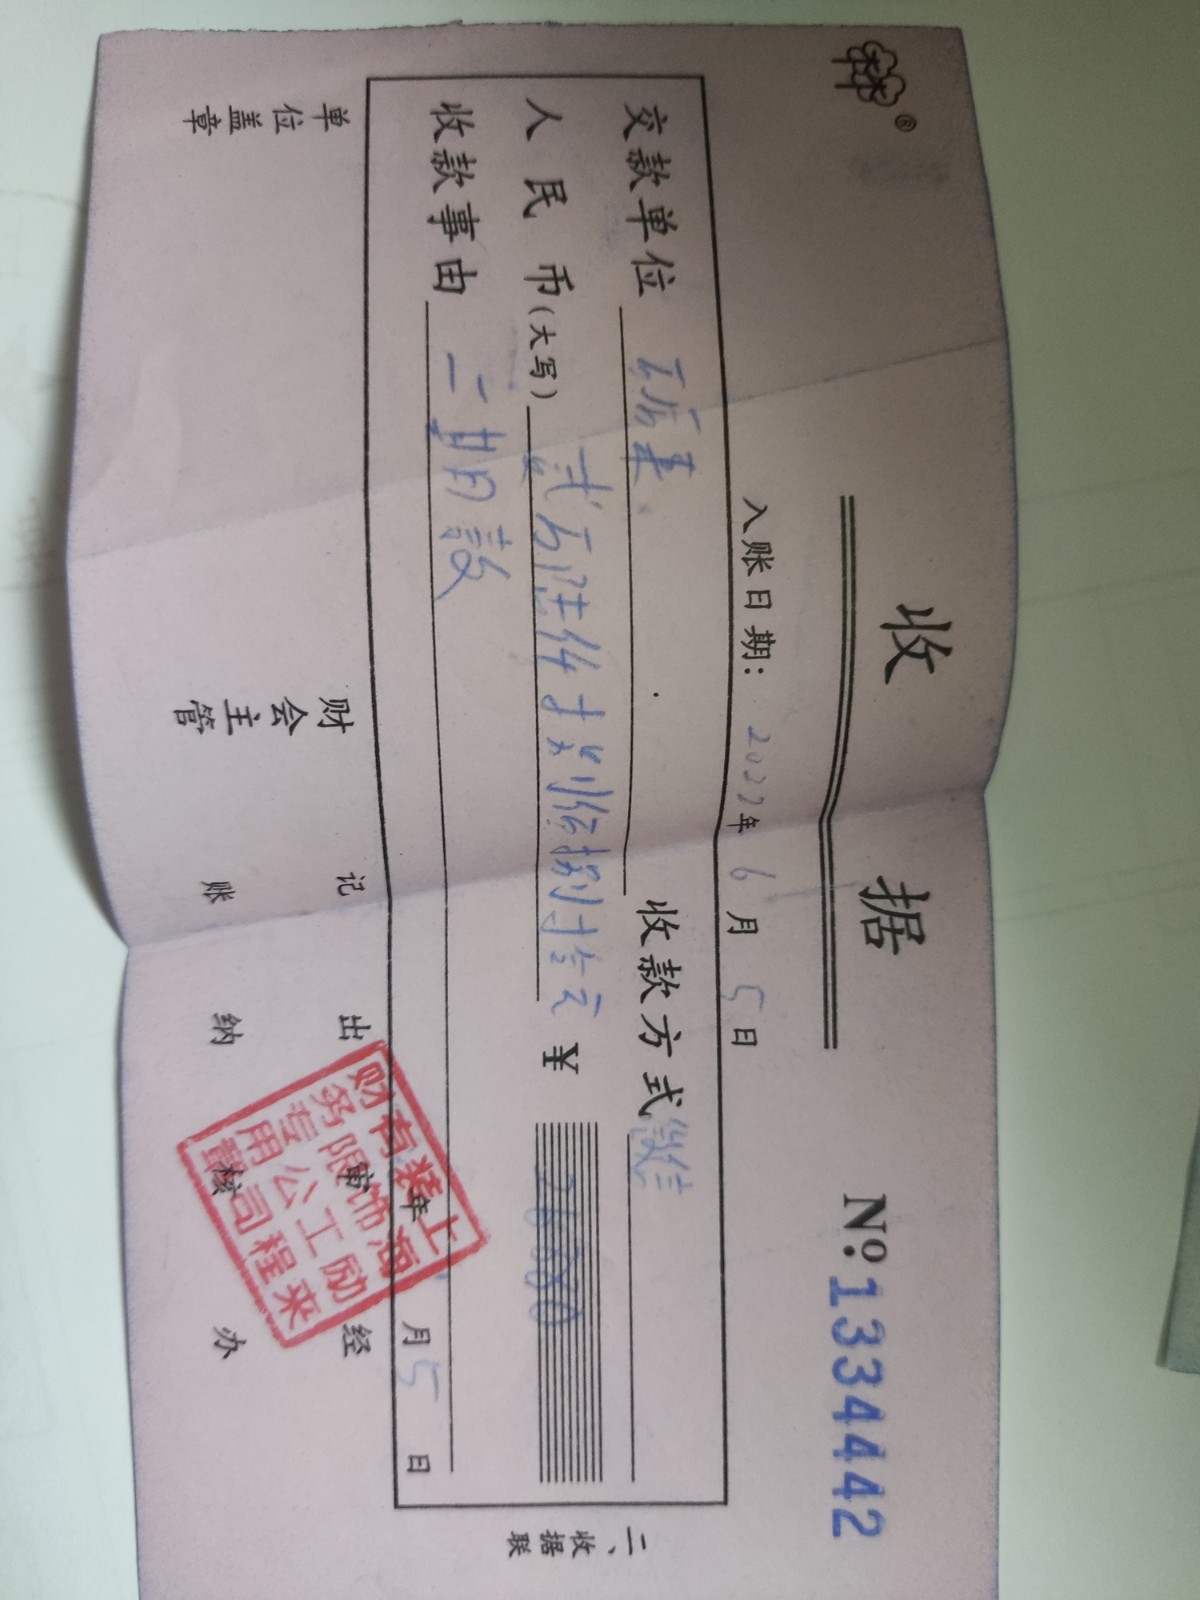 收 据
№ 1334442
入账日期： 2022年 6 月 5 日
交款单位 收款方式 微信
人民币(大写) ¥ 26880
收款事由 二期款
年 月 5 日
单位盖章 财会主管 记账 出纳 审核 经办
二、收据联
上海励来
装饰工程
有限公司
财务专用章